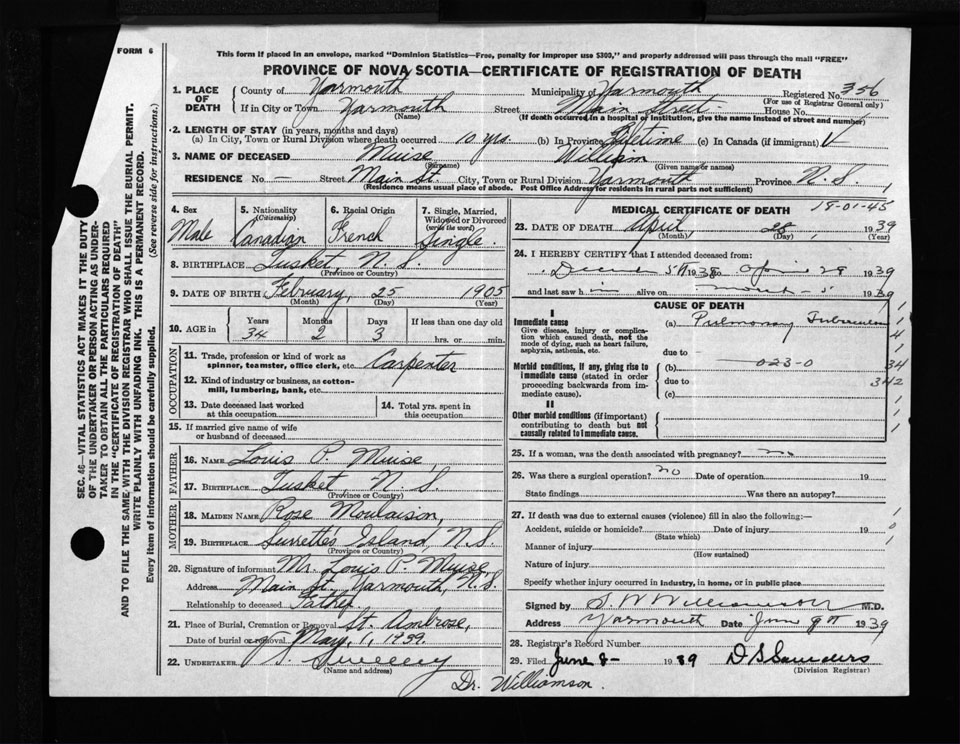 FORM 6
This form if placed in an envelope, marked "Dominion Statistics—Free, penalty for improper use $300," and properly addressed will pass through the mail "FREE"
PROVINCE OF NOVA SCOTIA—CERTIFICATE OF REGISTRATION OF DEATH
SEC. 46—VITAL STATISTICS ACT MAKES IT THE DUTY
OF THE UNDERTAKER OR PERSON ACTING AS UNDER-
TAKER TO OBTAIN ALL THE PARTICULARS REQUIRED
IN THE "CERTIFICATE OF REGISTRATION OF DEATH"
AND TO FILE THE SAME WITH THE DIVISION REGISTRAR WHO SHALL ISSUE THE BURIAL PERMIT.
WRITE PLAINLY WITH UNFADING INK. THIS IS A PERMANENT RECORD.
Every item of information should be carefully supplied. (See reverse side for instructions.)
1. PLACE OF DEATH County of Yarmouth Municipality of Yarmouth Registered No. 356
(For use of Registrar General only)
If in City or Town Yarmouth Street Main Street House No.
(Name) (If death occurred in a hospital or institution, give the name instead of street and number)
2. LENGTH OF STAY (in years, months and days)
(a) In City, Town or Rural Division where death occurred 10 yrs. (b) In Province Lifetime (c) In Canada (if immigrant) V
3. NAME OF DECEASED Muise William
(Surname) (Given name or names)
RESIDENCE No. — Street Main St. City, Town or Rural Division Yarmouth Province N.S.
(Residence means usual place of abode. Post Office Address for residents in rural parts not sufficient)
4. Sex Male
5. Nationality (Citizenship) Canadian
6. Racial Origin French
7. Single, Married, Widowed or Divorced (write the word) Single.
8. BIRTHPLACE Tusket, N.S.
(Province or Country)
9. DATE OF BIRTH February, 25 1905
(Month) (Day) (Year)
10. AGE in Years 34 Months 2 Days 3 If less than one day old
hrs. or min.
OCCUPATION
11. Trade, profession or kind of work as spinner, teamster, office clerk, etc. Carpenter
12. Kind of industry or business, as cotton-mill, lumbering, bank, etc.
13. Date deceased last worked at this occupation
14. Total yrs. spent in this occupation
15. If married give name of wife or husband of deceased
FATHER
16. NAME Louis P. Muise,
17. BIRTHPLACE Tusket, N.S.
(Province or Country)
MOTHER
18. MAIDEN NAME Rose Moulaison,
19. BIRTHPLACE Surrette's Island, N.S.
(Province or Country)
20. Signature of informant Mr. Louis P. Muise,
Address Main St. Yarmouth, N.S.
Relationship to deceased Father.
21. Place of Burial, Cremation or Removal St. Ambrose,
Date of burial or removal May, 1, 1939.
22. UNDERTAKER Sweeney
(Name and address)
Dr. Williamson.
MEDICAL CERTIFICATE OF DEATH 18-01-45
23. DATE OF DEATH April 28 1939
(Month) (Day) (Year)
24. I HEREBY CERTIFY that I attended deceased from:
5th 1938 to April 28 1939
and last saw h im alive on 1939
CAUSE OF DEATH
I
Immediate cause
Give disease, injury or complication which caused death, not the mode of dying, such as heart failure, asphyxia, asthenia, etc.
(a) Pulmonary Tuberculosis
due to
Morbid conditions, if any, giving rise to immediate cause (stated in order proceeding backwards from immediate cause).
(b) 023-0 34
due to 342
(c)
II
Other morbid conditions (if important) contributing to death but not causally related to immediate cause.
25. If a woman, was the death associated with pregnancy? no
26. Was there a surgical operation? no Date of operation 19
State findings Was there an autopsy?
27. If death was due to external causes (violence) fill in also the following:—
Accident, suicide or homicide? Date of injury 19
(State which)
Manner of injury
(How sustained)
Nature of injury
Specify whether injury occurred in Industry, in home, or in public place
Signed by S. W Williamson M.D.
Address Yarmouth Date June 9th 1939
28. Registrar's Record Number
29. Filed June 8- 1939 D S Saunders
(Division Registrar)